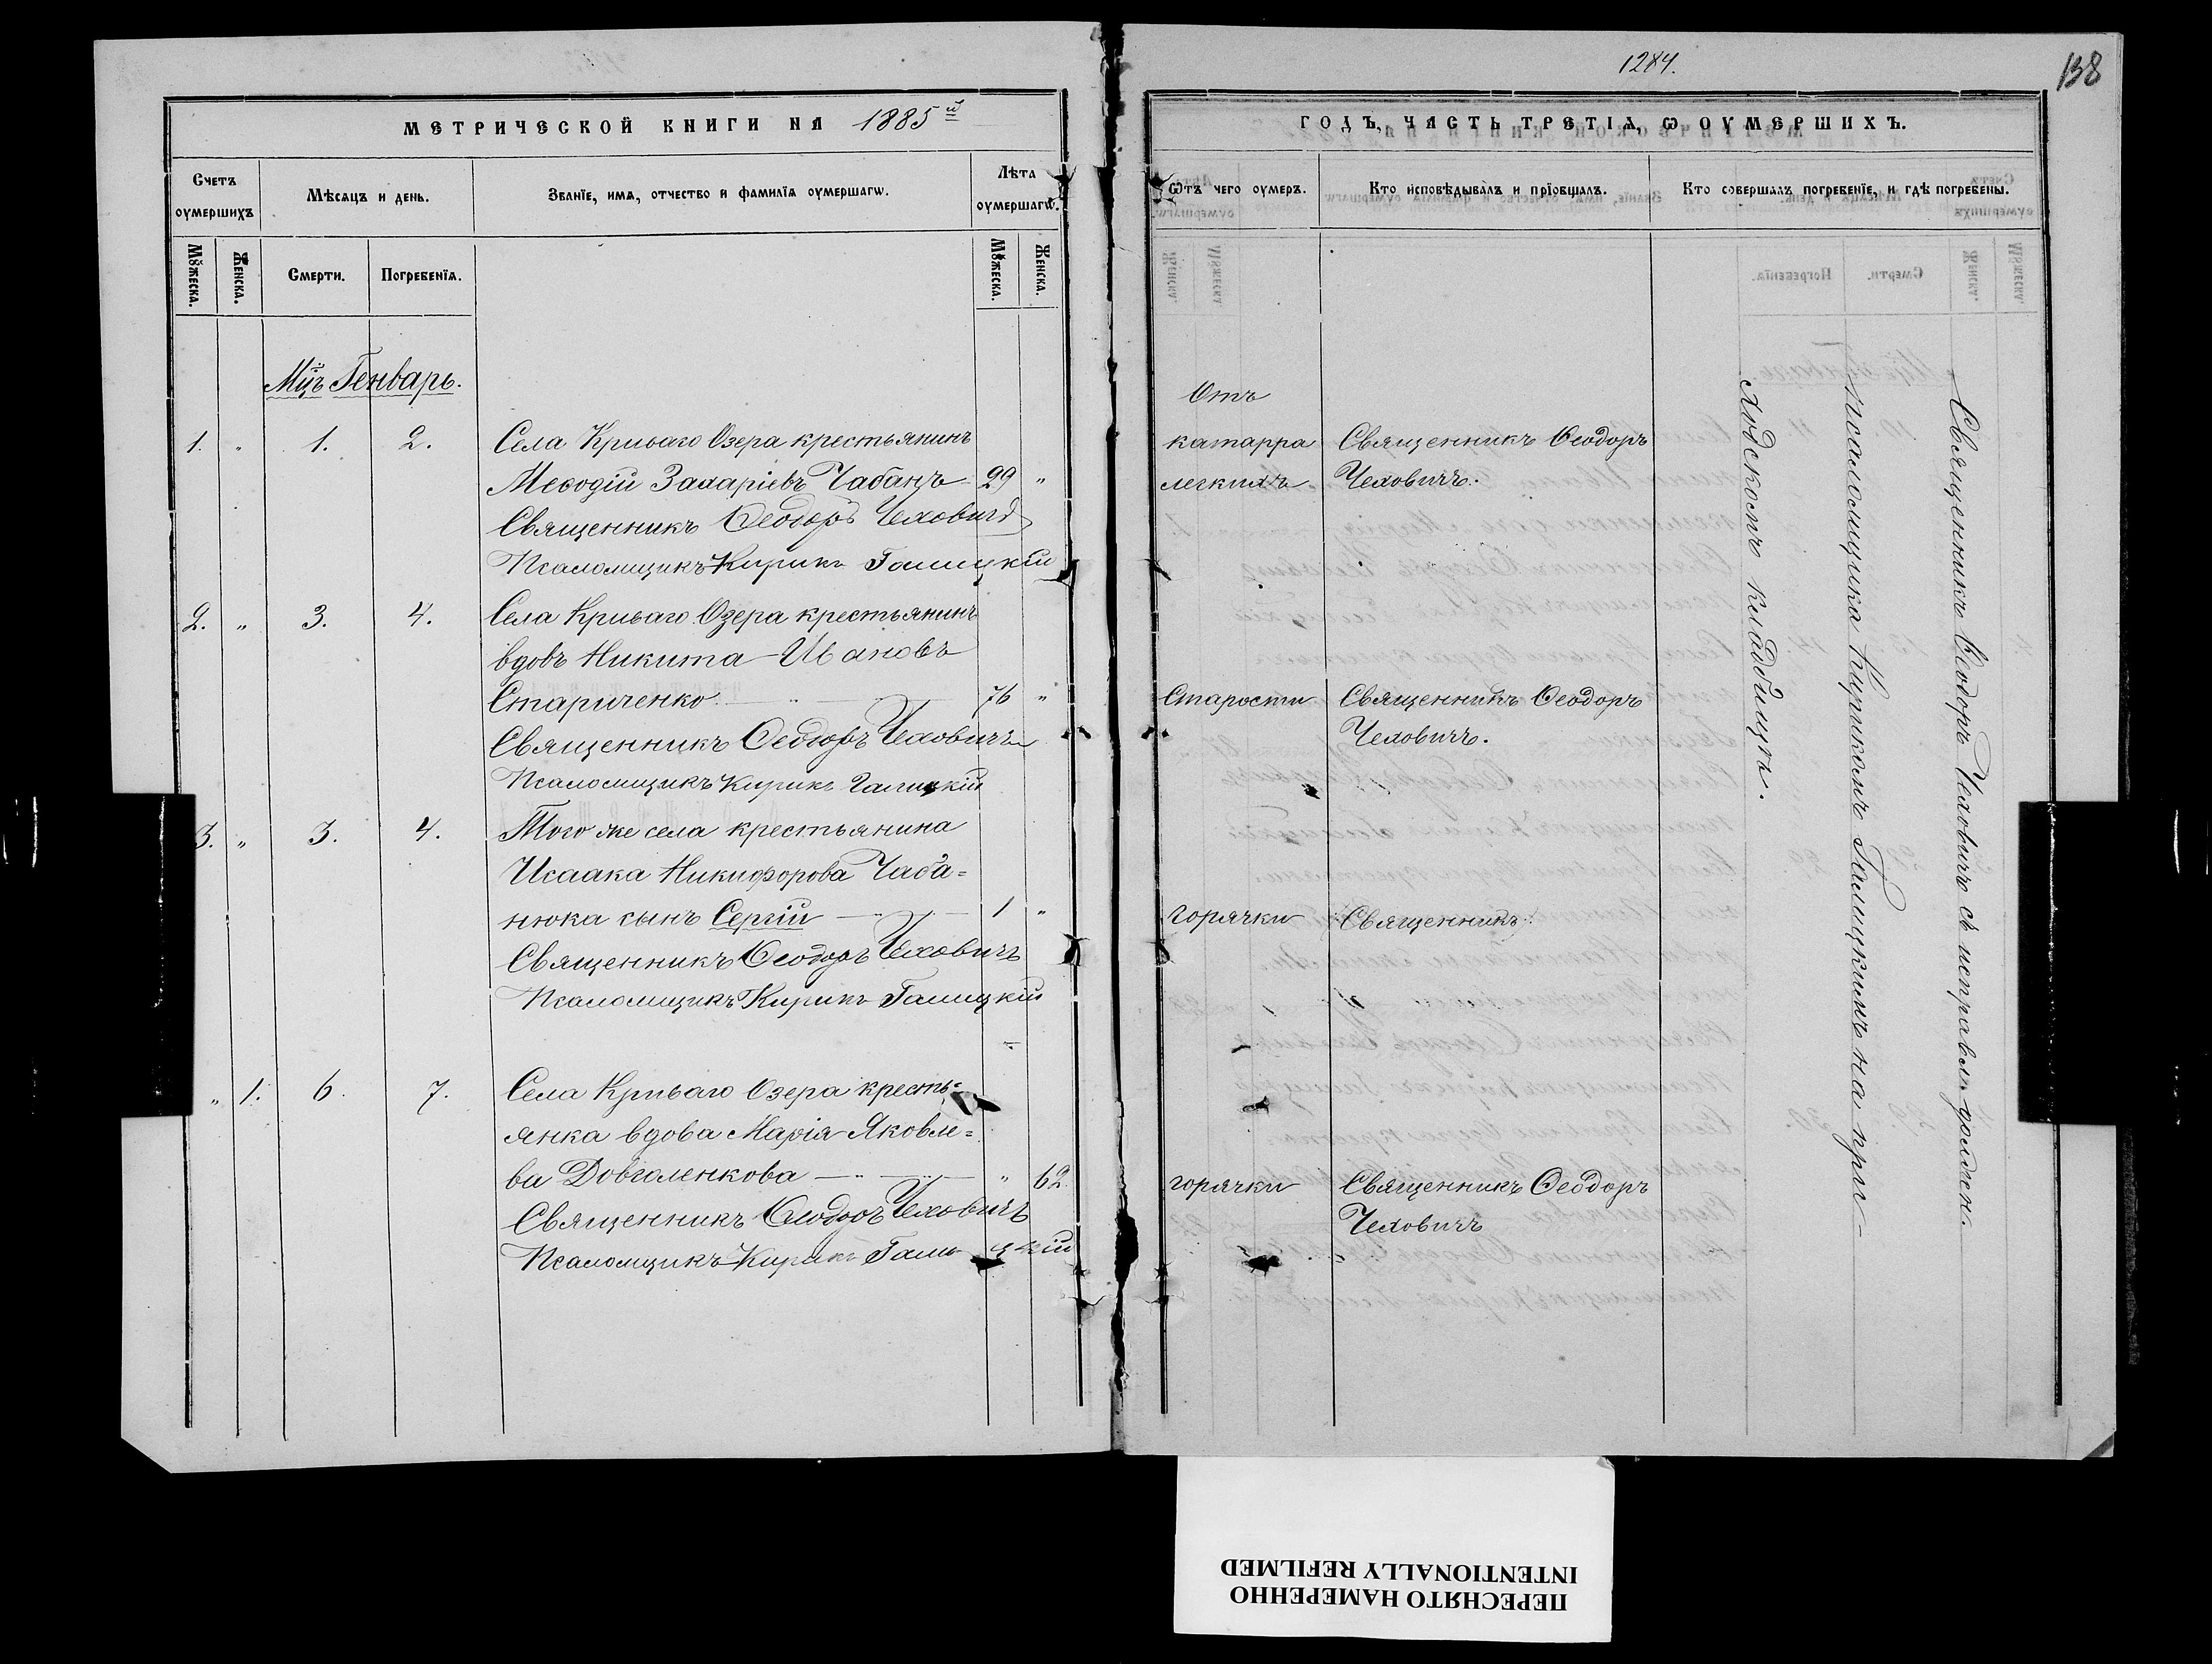 МЕТРИЧЕСКОЙ КНИГИ НА 1885й
Счетъ оумершихъ
Мѣсяцъ и день.
Званїе, имя, отчество и фамилїя оумершагѡ.
Лѣта оумершагѡ.
Мꙋжеска.
Женска.
Смерти.
Погребенїя.
Мꙋжеска.
Женска.
Мцъ Генварь.
1. " 1. 2. Села Криваго Озера крестьянинъ
Меѳодій Захаріевъ Чабанъ 29 "
Священникъ Ѳеодоръ Чеховичъ
Псаломщикъ Кирикъ Галицкій
2. " 3. 4. Села Криваго Озера крестьянинъ
вдовъ Никита Ивановъ
Стариченко 76 "
Священникъ Ѳеодоръ Чеховичъ
Псаломщикъ Кирикъ Галицкій
3. " 3. 4. Того же села крестьянина
Исаака Никифорова Чаба=
нюка сынъ Сергій 1 "
Священникъ Ѳеодоръ Чеховичъ
Псаломщикъ Кирикъ Галицкій
" 1. 6. 7. Села Криваго Озера кресть=
янка вдова Марія Яковле=
ва Довгаленкова " 62.
Священникъ Ѳеодоръ Чеховичъ
Псаломщикъ Кирикъ Галицкій
1284.
138
ГОДЪ, ЧАСТЬ ТРЕТІѦ, Ѡ ОУМЕРШИХЪ.
Ѿтъ чего оумеръ.
Кто исповѣдывалъ и прїобщалъ.
Кто совершалъ погребенїе, и гдѣ погребены.
Отъ
катарра Священникъ Ѳеодоръ
легкихъ Чеховичъ.
Старости Священникъ Ѳеодоръ
Чеховичъ.
горячки Священникъ.
горячки Священникъ Ѳеодоръ
Чеховичъ
Священникъ Ѳеодоръ Чеховичъ съ исправл. должн.
псаломщика Кирикомъ Галицкимъ на при-
ходскомъ кладбищѣ.
ПЕРЕСНЯТО НАМЕРЕННО
INTENTIONALLY REFILMED